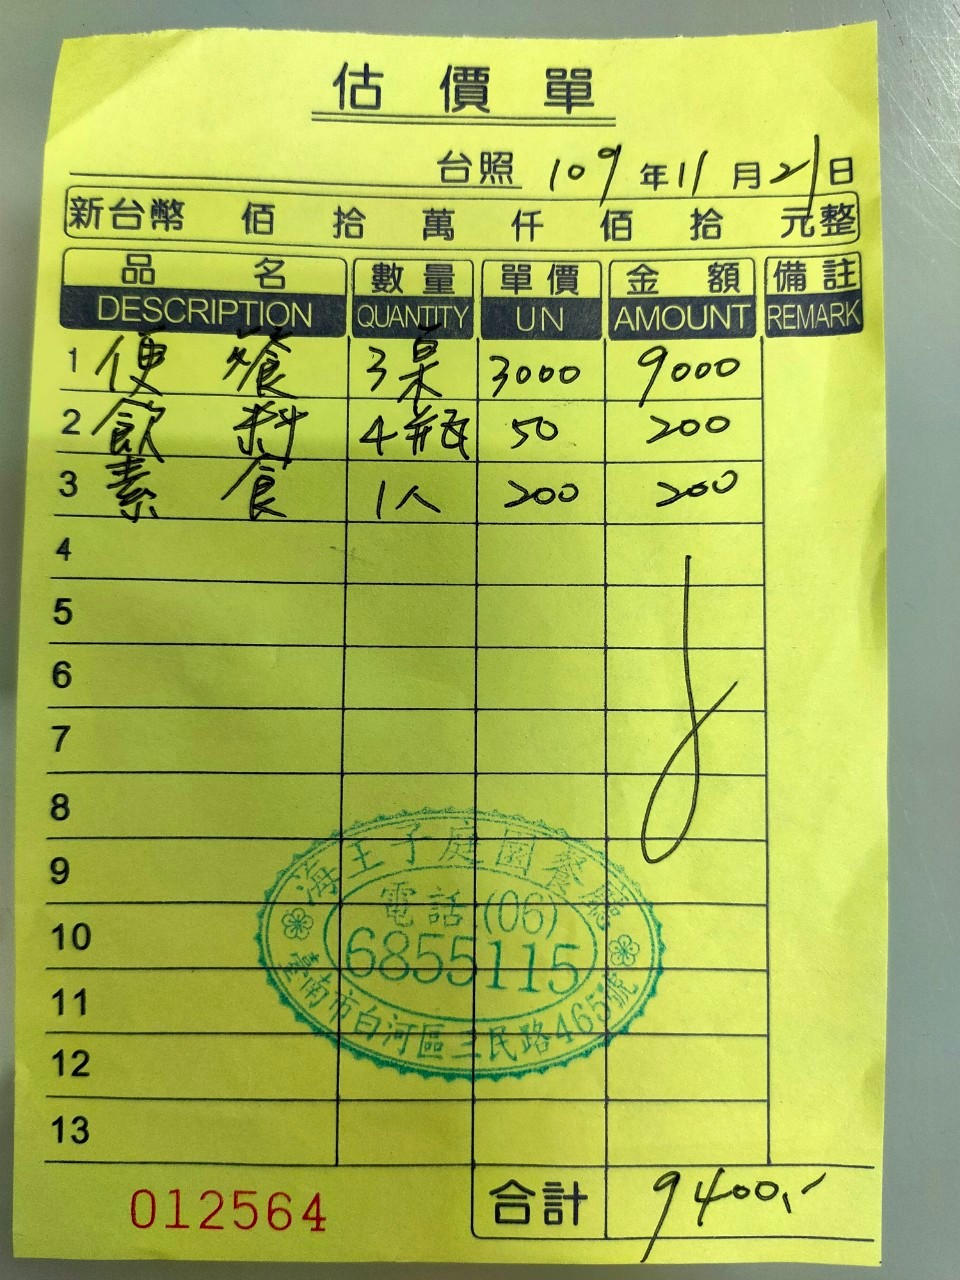 估價單
台照 109年11月21日
新台幣 佰 拾 萬 仟 佰 拾 元整
品名 數量 單價 金額 備註
DESCRIPTION QUANTITY UN AMOUNT REMARK
1 便餐 3桌 3000 9000
2 飲料 4瓶 50 200
3 素食 1人 200 200
4
5
6
7
8
9
10
11
12
13
海王子庭園餐廳
電話(06)
6855115
臺南市白河區三民路465號
012564 合計 9400.-